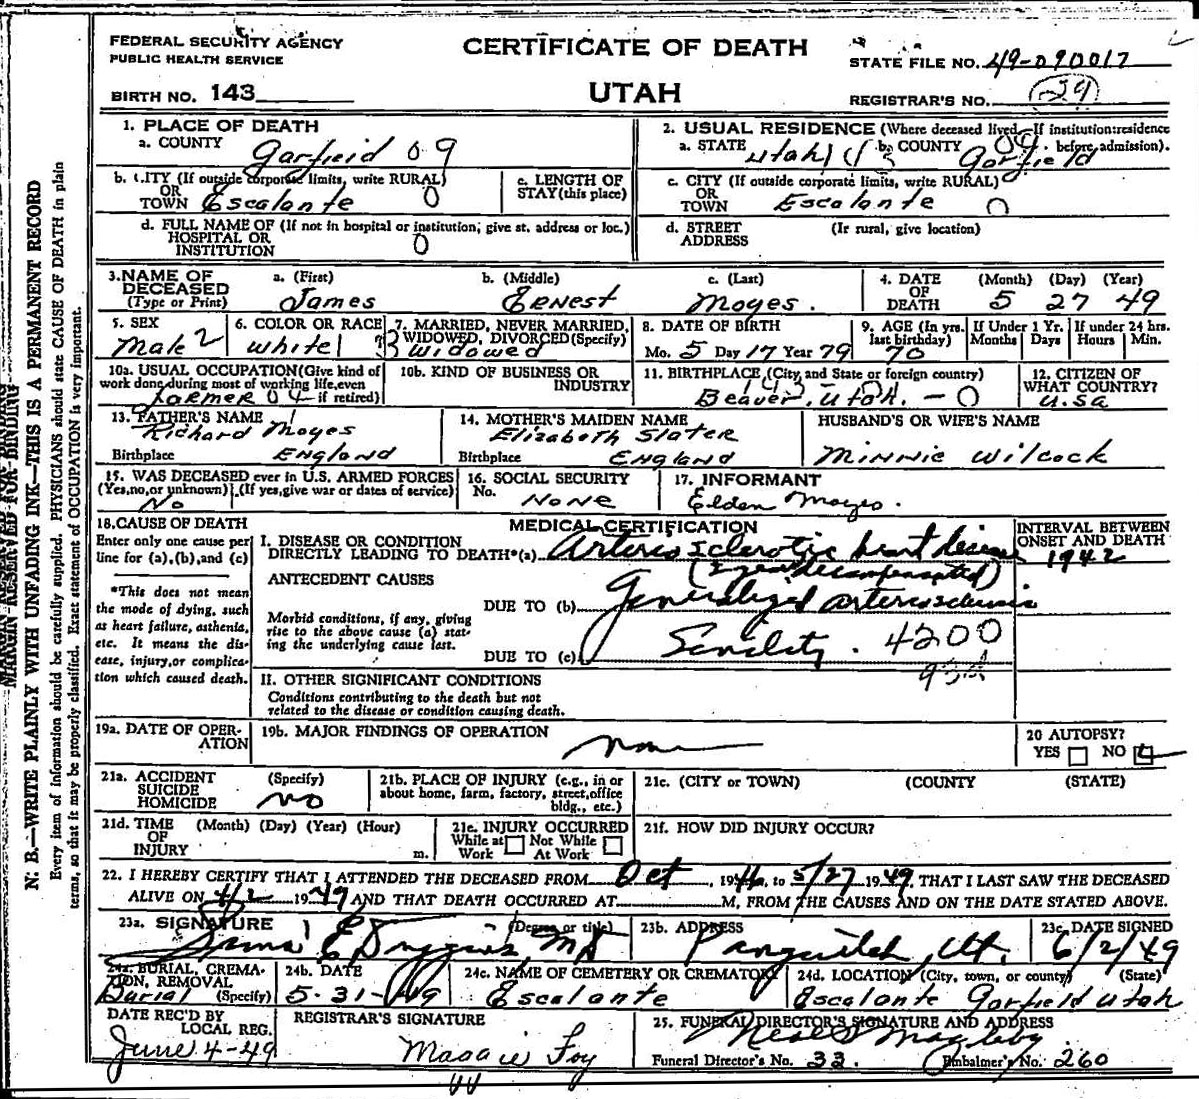 FEDERAL SECURITY AGENCY
PUBLIC HEALTH SERVICE
CERTIFICATE OF DEATH
STATE FILE NO. 49-090017
BIRTH NO. 143
UTAH
REGISTRAR'S NO. 29
1. PLACE OF DEATH
a. COUNTY Garfield 09
2. USUAL RESIDENCE (Where deceased lived. If institution: residence before admission).
a. STATE Utah b. COUNTY Garfield 09
b. CITY (If outside corporate limits, write RURAL)
OR
TOWN Escalante 0
c. LENGTH OF
STAY (this place)
c. CITY (If outside corporate limits, write RURAL)
OR
TOWN Escalante 0
d. FULL NAME OF (If not in hospital or institution; give st. address or loc.)
HOSPITAL OR
INSTITUTION 0
d. STREET
ADDRESS
(If rural, give location)
3. NAME OF
DECEASED
(Type or Print)
a. (First) James
b. (Middle) Ernest
c. (Last) Moyes.
4. DATE
OF
DEATH
(Month) (Day) (Year)
5 27 49
5. SEX
Male 2
6. COLOR OR RACE
White 1
7. MARRIED, NEVER MARRIED,
WIDOWED, DIVORCED (Specify)
3 Widowed
8. DATE OF BIRTH
Mo. 5 Day 17 Year 79
9. AGE (In yrs.
last birthday)
70
If Under 1 Yr.
Months Days
If under 24 hrs.
Hours Min.
10a. USUAL OCCUPATION (Give kind of
work done during most of working life, even
if retired)
Farmer 04
10b. KIND OF BUSINESS OR
INDUSTRY
11. BIRTHPLACE (City, and State or foreign country)
143
Beaver, Utah. - 0
12. CITIZEN OF
WHAT COUNTRY?
U.S.A
13. FATHER'S NAME
Richard Moyes
Birthplace England
14. MOTHER'S MAIDEN NAME
Elizabeth Slater
Birthplace England
HUSBAND'S OR WIFE'S NAME
Minnie Wilcock
15. WAS DECEASED ever in U.S. ARMED FORCES
(Yes, no, or unknown) (If yes, give war or dates of service)
No
16. SOCIAL SECURITY
No. None
17. INFORMANT
Elden Moyes.
18. CAUSE OF DEATH
Enter only one cause per
line for (a), (b), and (c)
*This does not mean
the mode of dying, such
as heart failure, asthenia,
etc. It means the dis-
ease, injury, or complica-
tion which caused death.
MEDICAL CERTIFICATION
I. DISEASE OR CONDITION
DIRECTLY LEADING TO DEATH*(a) Arterio sclerotic heart disease
decompensated)
INTERVAL BETWEEN
ONSET AND DEATH
1942
ANTECEDENT CAUSES
DUE TO (b) Generalized arteriosclerosis
Morbid conditions, if any, giving
rise to the above cause (a) stat-
ing the underlying cause last.
DUE TO (c) Senility. 4200
II. OTHER SIGNIFICANT CONDITIONS
Conditions contributing to the death but not
related to the disease or condition causing death.
19a. DATE OF OPER-
ATION
19b. MAJOR FINDINGS OF OPERATION
none
20 AUTOPSY?
YES NO
21a. ACCIDENT
SUICIDE
HOMICIDE
(Specify)
No
21b. PLACE OF INJURY (e.g., in or
about home, farm, factory, street, office
bldg., etc.)
21c. (CITY or TOWN) (COUNTY) (STATE)
21d. TIME
OF
INJURY
(Month) (Day) (Year) (Hour)
m.
21e. INJURY OCCURRED
While at Work Not While At Work
21f. HOW DID INJURY OCCUR?
22. I HEREBY CERTIFY THAT I ATTENDED THE DECEASED FROM Oct, 1946, to 5/27 1949, THAT I LAST SAW THE DECEASED
ALIVE ON 4/2 1949 AND THAT DEATH OCCURRED AT M, FROM THE CAUSES AND ON THE DATE STATED ABOVE.
23a. SIGNATURE (Degree or title)
M.D
23b. ADDRESS
Panguitch, Ut.
23c. DATE SIGNED
6/2/49
24a. BURIAL, CREMA-
TION, REMOVAL
(Specify)
Burial
24b. DATE
5-31-49
24c. NAME OF CEMETERY OR CREMATORY
Escalante
24d. LOCATION (City, town, or county) (State)
Escalante Garfield Utah
DATE REC'D BY
LOCAL REG.
June 4-49
REGISTRAR'S SIGNATURE
Maggie Foy
25. FUNERAL DIRECTOR'S SIGNATURE AND ADDRESS
Neal S Magleby.
Funeral Director's No. 33. Embalmer's No. 260
MARGIN RESERVED FOR BINDING
N. B.—WRITE PLAINLY WITH UNFADING INK—THIS IS A PERMANENT RECORD
Every item of information should be carefully supplied. PHYSICIANS should state CAUSE OF DEATH in plain
terms, so that it may be properly classified. Exact statement of OCCUPATION is very important.